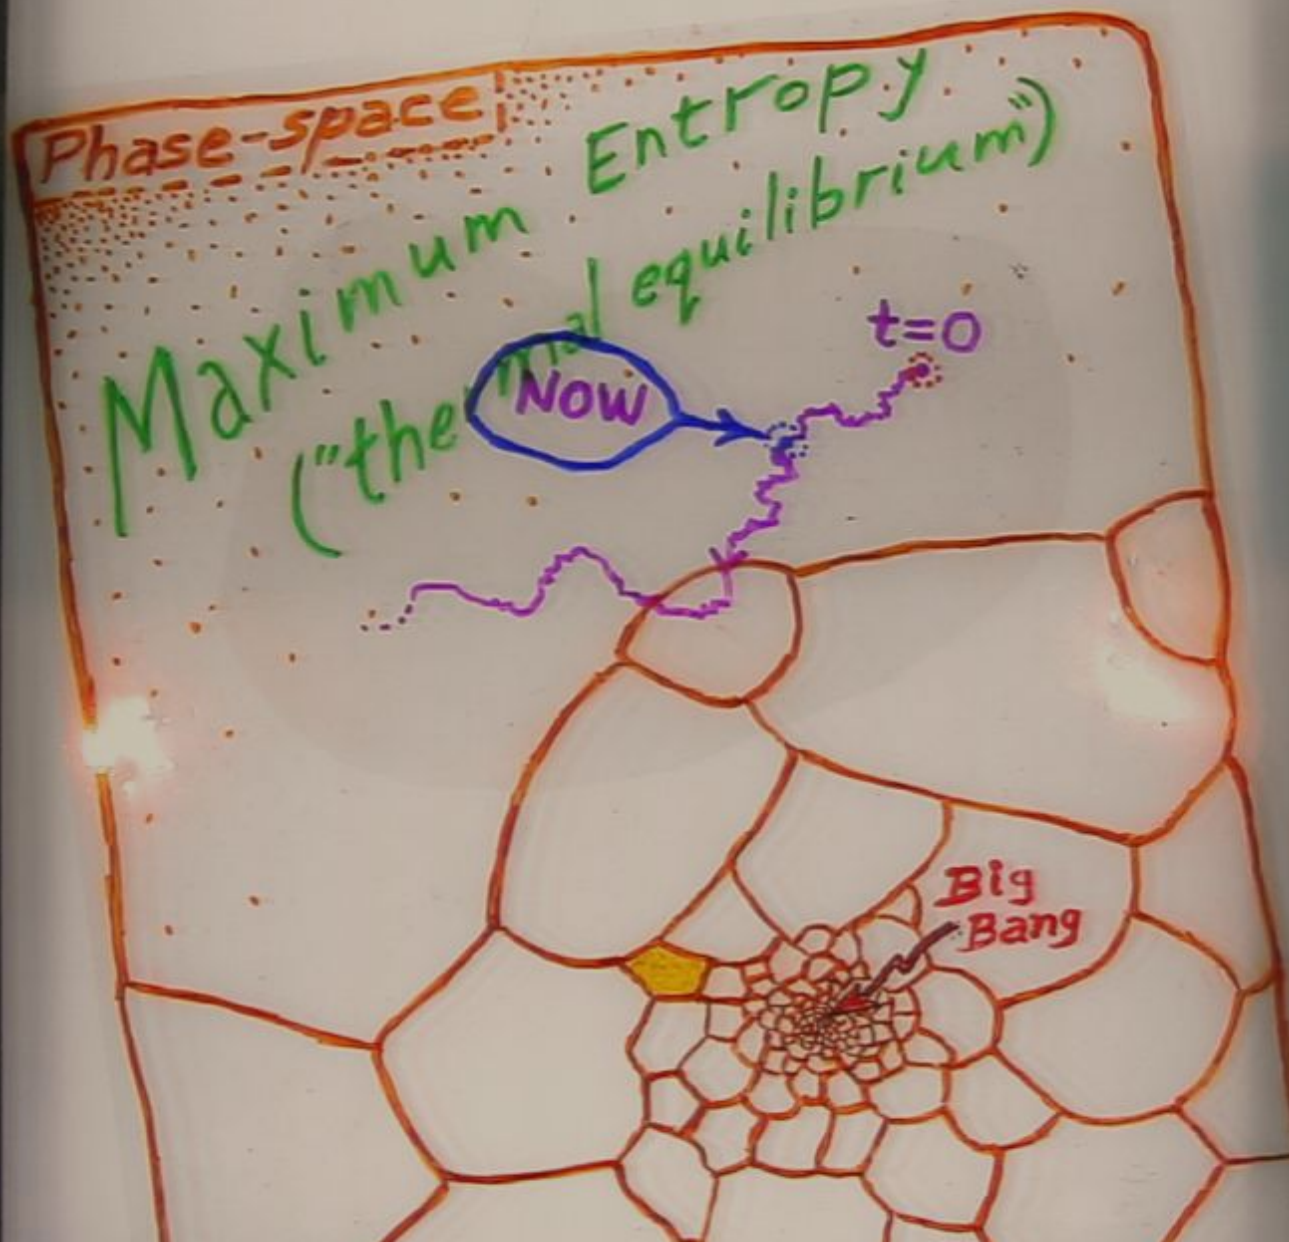 Phase-space
Maximum Entropy
("thermal equilibrium")
t=0
Now
Big
Bang